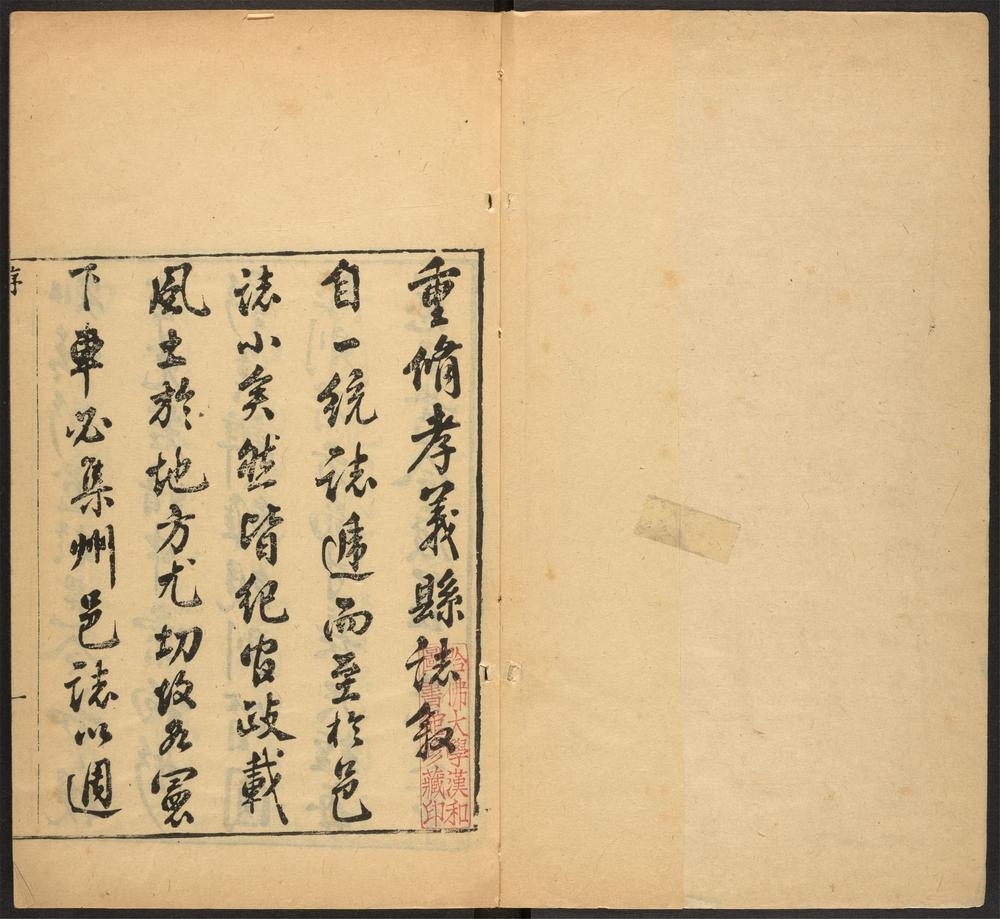 重脩孝義縣誌叙
自一統誌遞而至於邑
誌小矣然皆紀官政載
風土於地方尤切故各憲
下車必集州邑誌以週
序
一
哈佛大學漢和
圖書館珍藏印